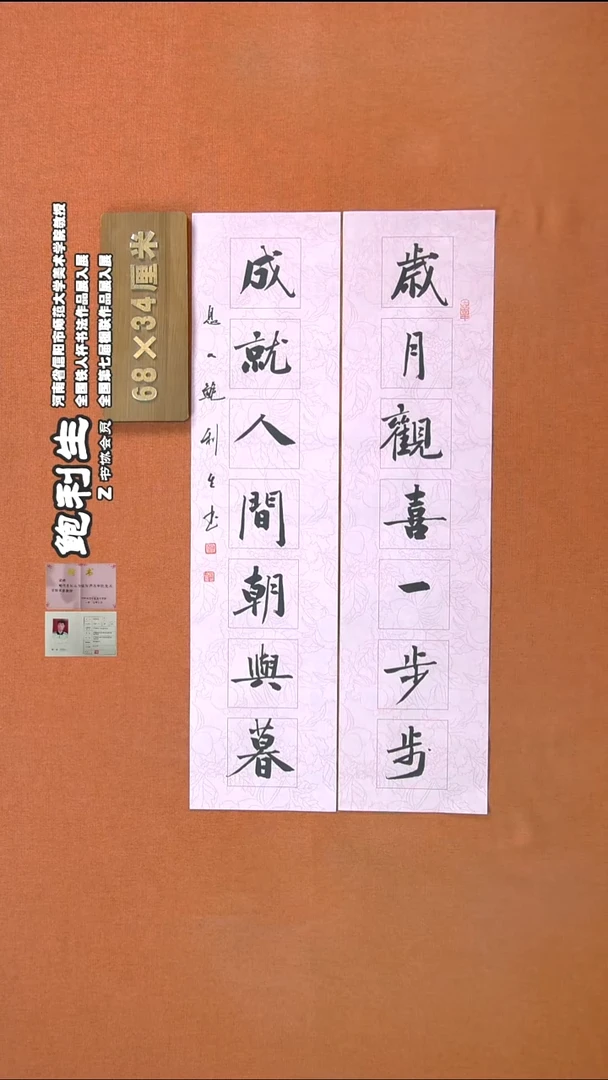 歲月觀喜一步步
成就人間朝與暮
鮑利生书
68×34厘米
河南省信阳市师范大学美术学院教授
全国铁人杯书法作品展入展
全国第七届楹联作品展入展
鲍利生
Z书协会员